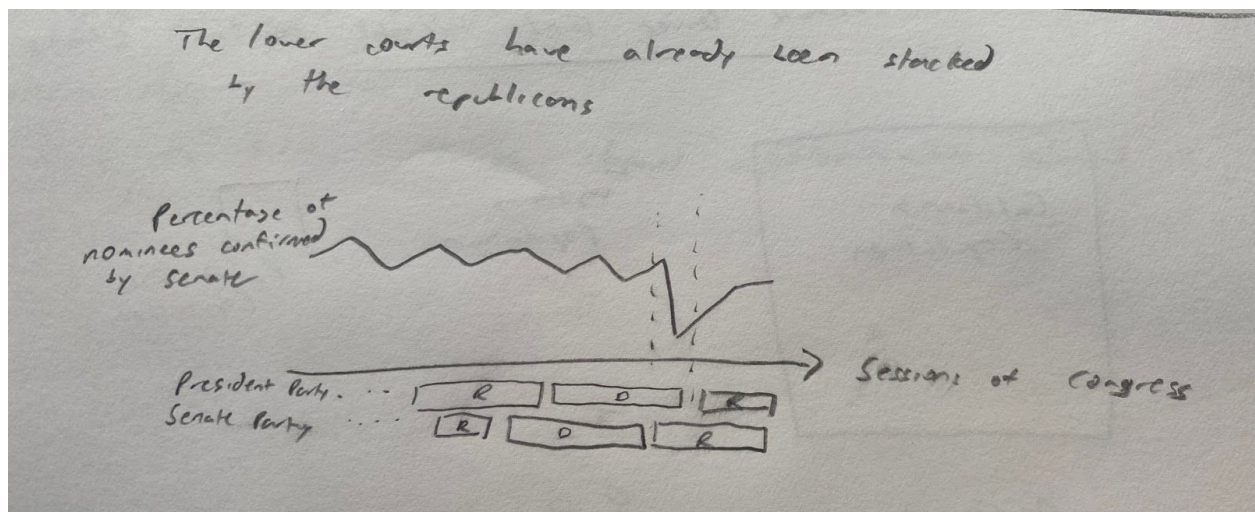 The lower courts have already been stacked
by the republicans
Percentage of
nominees confirmed
by senate
Sessions of Congress
President Party. ...
R
D
R
Senate Party ....
R
D
R